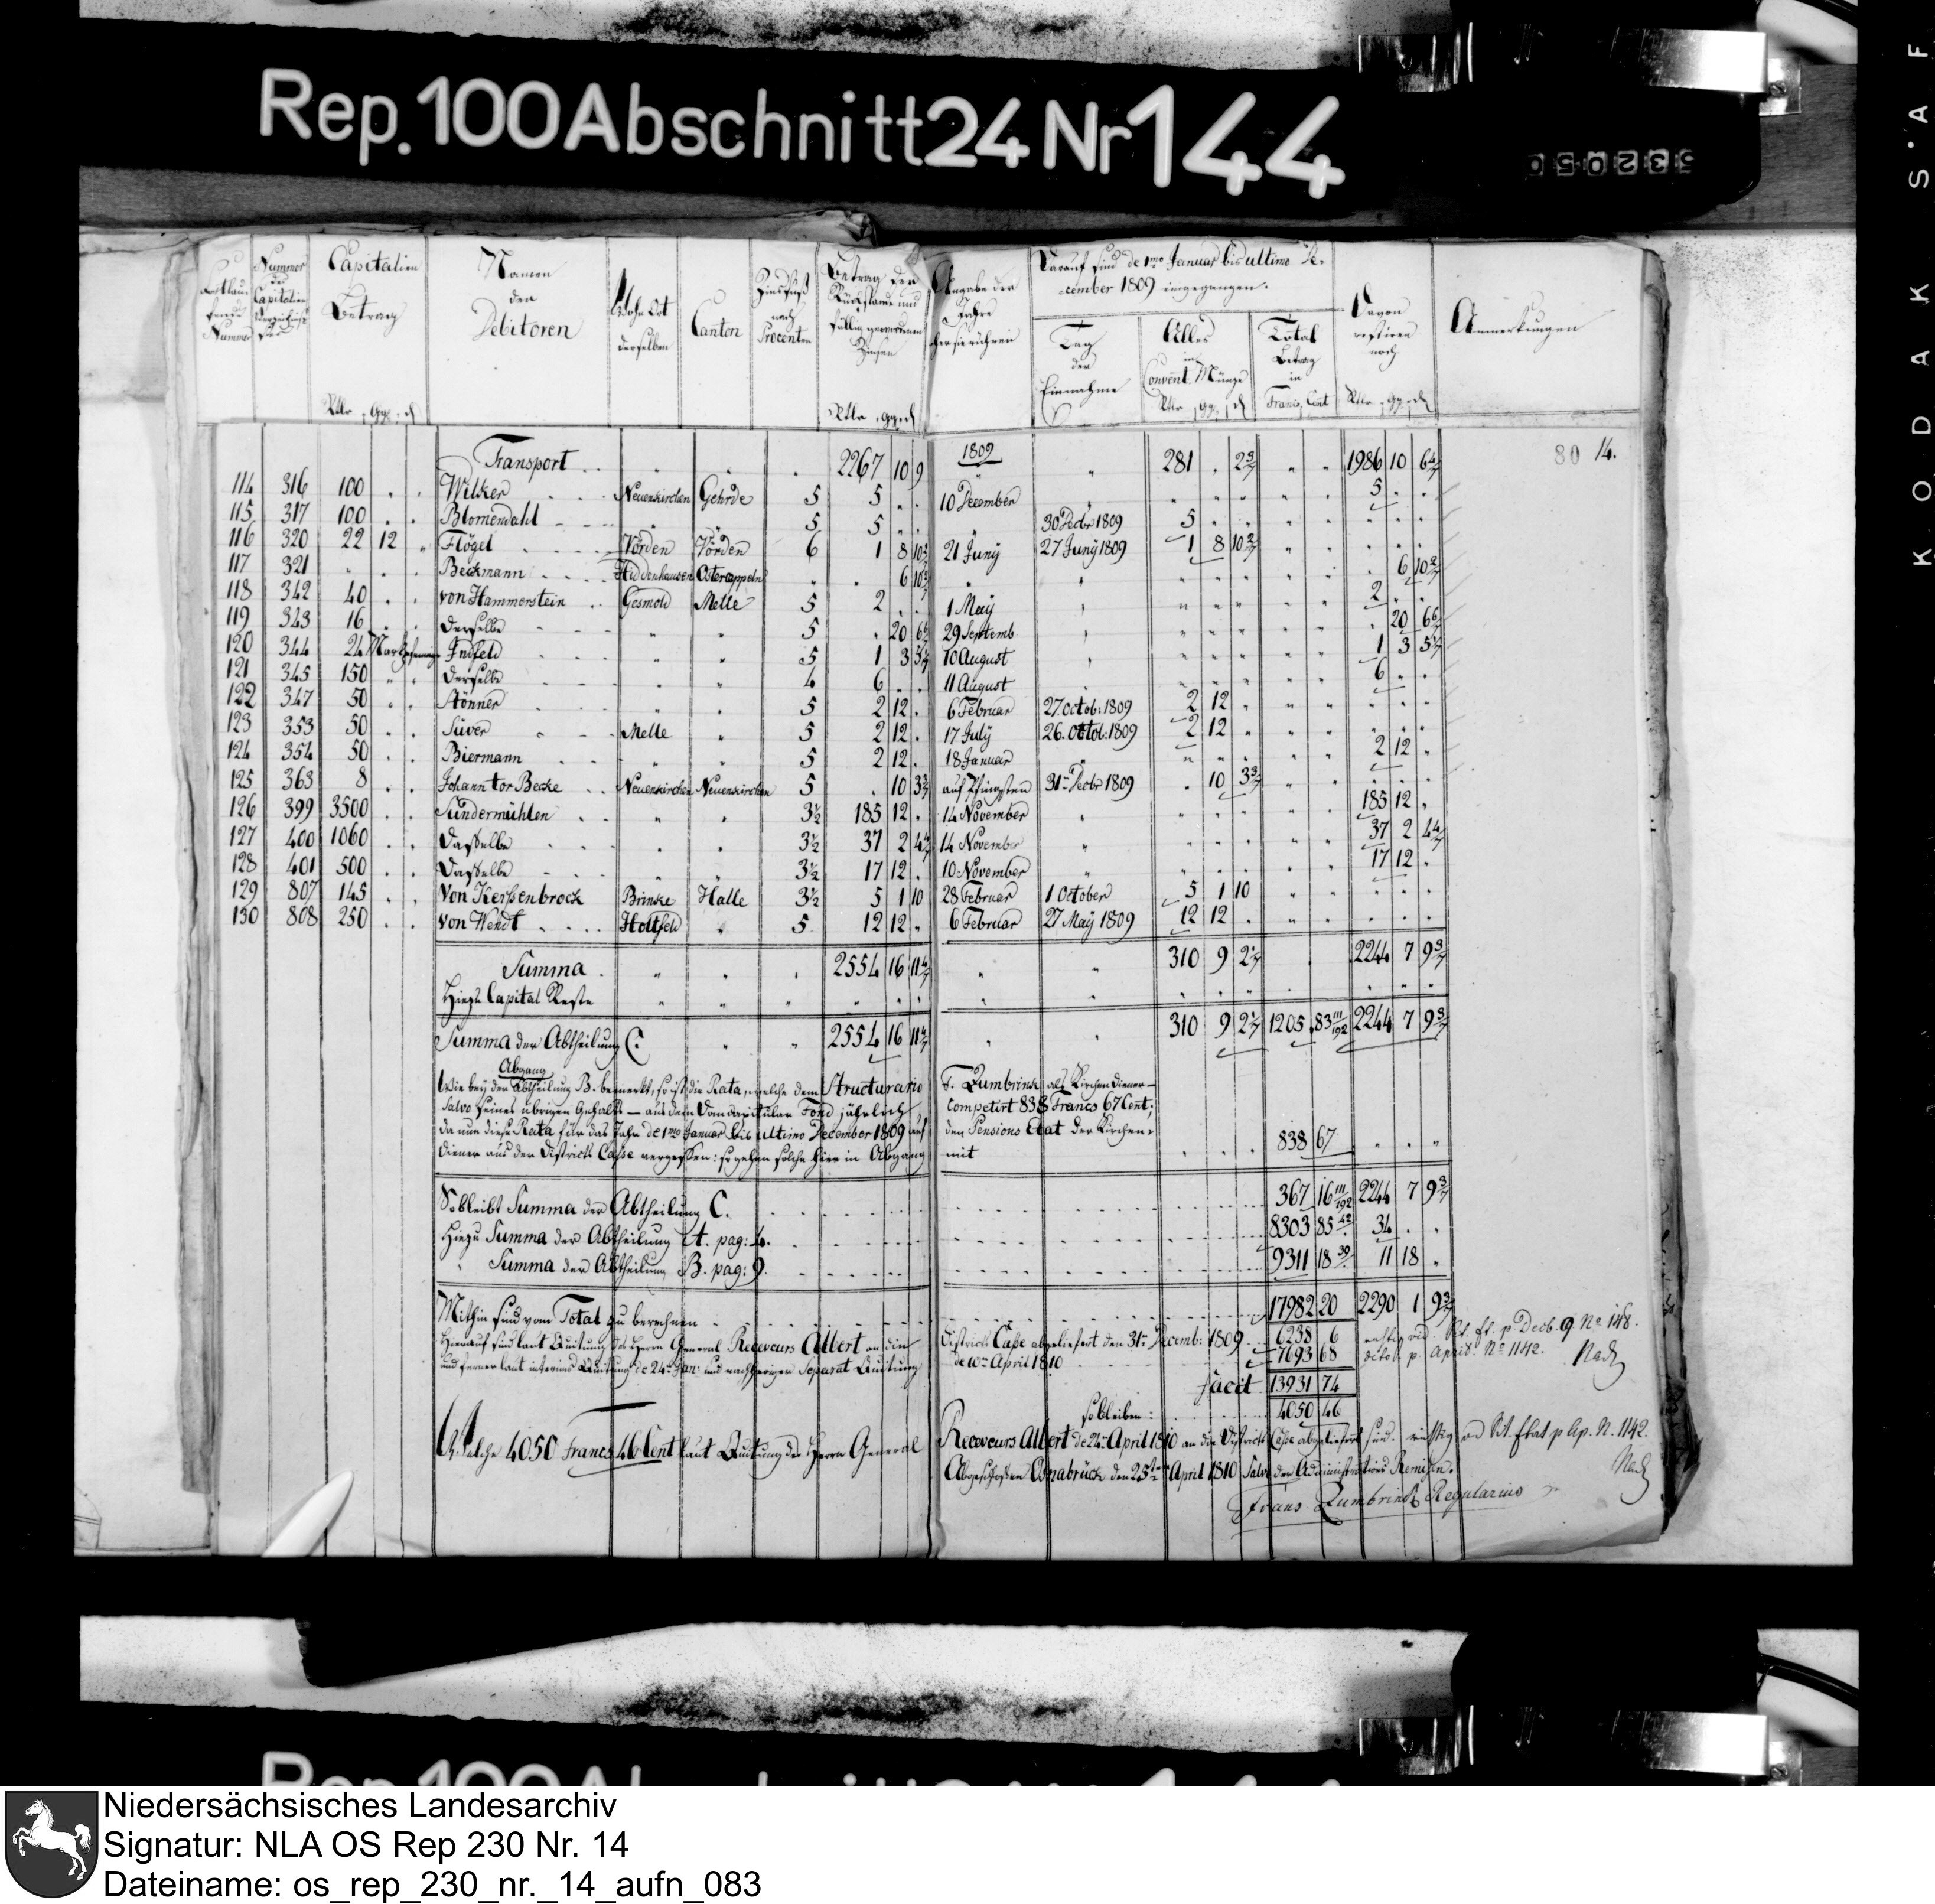 Rep. 100 Abschnitt 24 Nr 144
Nummer der Capitalien
Capitalien Betrag
Namen der Debitoren
Wohn Ort derselben
Canton
Zinsfuß nach Procenten
Betrag der Rückstände und fällig gewordenen Zinsen
Angabe der Jahre
Darauf sind de 1mo Januar bis ultimo De-
cember 1809 eingegangen.
Tag der Einnahme
Alles in Convent. Münze
Total Betrag in
Francs, Cent
Davon restiren noch
Anmerkungen
Rtlr. ggr. d
80 14.
Transport 2267 10 9 1809 281 . 2 3/7 1986 10 6 4/7
114 316 100 . . Wilker Neuenkirchen Gehrde 5 5 . . 10 December 5 . .
115 317 100 . . Blomendahl 5 5 . . 30 Decbr 1809 5 . .
116 320 22 12 Flögel Vörden Vörden 6 1 8 10 2/7 21 Juny 27 Juny 1809 1 8 10 2/7
117 321 Beckmann Hiddenhausen Ostercappeln 6 10 2/7 6 10 2/7
118 342 40 . . von Hammerstein Gesmold Melle 5 2 . . 1 May 2 . .
119 343 16 . . Derselbe 5 . 20 6 6/7 29 Septemb. . 20 6 6/7
120 344 24 Mark Infeld 5 1 3 5 1/7 10 August 1 3 5 1/7
121 345 150 Derselbe 4 6 . . 11 August 6 . .
122 347 50 . . Stönner 5 2 12 . 6 Februar 27 octob: 1809 2 12
123 353 50 . . Süver Melle 5 2 12 . 17 July 26. octob: 1809 2 12
124 354 50 . . Biermann 5 2 12 . 18 Januar 2 12
125 363 8 . . Johann tor Becke Neuenkirchen Neuenkirchen 5 . 10 3 3/7 auf Pfingsten 31. Decbr 1809 . 10 3 3/7
126 399 3500 . . Sundermühlen 3½ 185 12 . 14 November 185 12 .
127 400 1060 . . Dasselbe 3½ 37 2 4 4/7 14 November 37 2 4 4/7
128 401 500 . . Dasselbe 3½ 17 12 . 10 November 17 12 .
129 807 145 . . von Kerßenbrock Brinke Halle 3½ 5 1 10 28 Februar 1 October 5 1 10
130 808 250 . . von Wendt Holtfeld 5 12 12 . 6 Februar 27 May 1809 12 12 .
Summa 2554 16 11 4/7 310 9 2 1/7 2244 7 9 3/7
Hiezu Capital Reste
Summa der Abtheilung C: 2554 16 11 4/7 310 9 2 1/7 1205 83 111/192 2244 7 9 3/7
Abgang
Wie bey der Abtheilung B. bemerkt, so ist die Rata, welche dem Structurario F. Zumbrinck als Kirchen Diener —
salvo seines übrigen Gehalts — aus dem Domcapitular Fond jährlich competirt 838 Francs 67 Cent;
da nun diese Rata für das Jahr de 1mo Januar bis ultimo December 1809 auf den Pensions Etat der Kirchen-
diener aus der Districts Casse vergessen: so gehen solche hier in Abgang mit 838 67
So bleibt Summa der Abtheilung C. 367 16 111/192 2244 7 9 3/7
Hiezu Summa der Abtheilung A. pag: 4. 8303 85 34 . .
Summa der Abtheilung B. pag: 9. 9311 18 11 18 .
Mithin sind vom Total zu berechnen 17982 20 2290 1 9 3/7
Hierauf sind laut Quitung des Herrn General Receveurs Albert an die Districts Casse abgeliefert den 31. Decemb: 1809 6238 6
und ferner laut interims Quitung de 24. Jan: und nachherigen Separat Quitung de 10. April 1810 7693 68
facit 13931 74
so bleiben: 4050 46
Welche 4050 Francs 46 Cent laut Quitung des Herrn General Receveurs Albert de 24. April 1810 an die Districts Casse abgeliefert sind.
Abgeschlossen Osnabrück den 25ten April 1810 salvo der Administrations Remisen.
Frans Zumbrinck Regularius
Niedersächsisches Landesarchiv
Signatur: NLA OS Rep 230 Nr. 14
Dateiname: os_rep_230_nr._14_aufn_083
KODAK S'AF